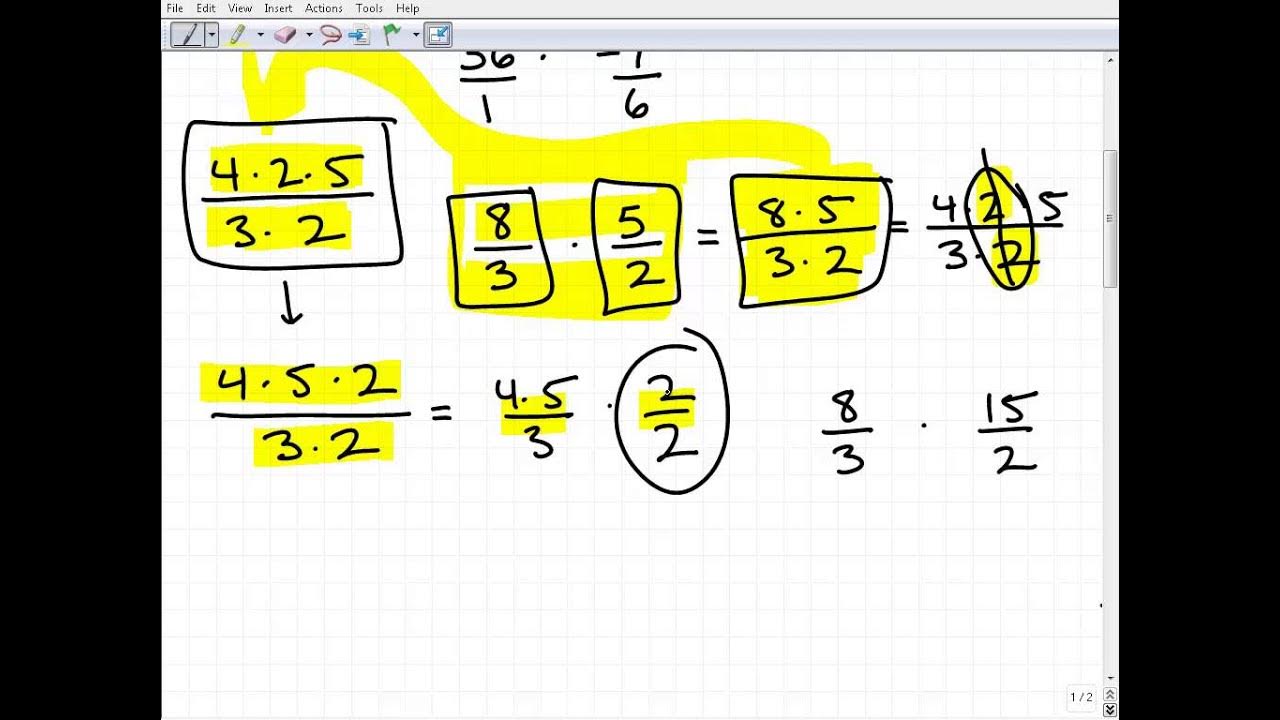 File Edit View Insert Actions Tools Help
36/1 · -1/6
(4·2·5)/(3·2)
8/3 · 5/2 = (8·5)/(3·2) = (4·2·5)/(3·2)
↓
(4·5·2)/(3·2) = (4·5)/3 · 2/2
8/3 · 15/2
1 / 2